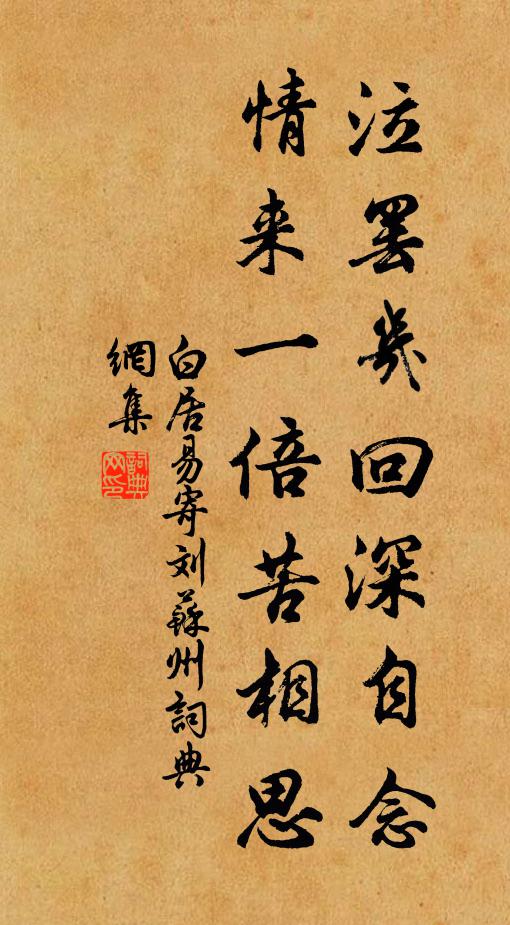 泣罢幾回深自念
情来一倍苦相思
白居易寄刘蘇州詞典
網集
詞典
网印